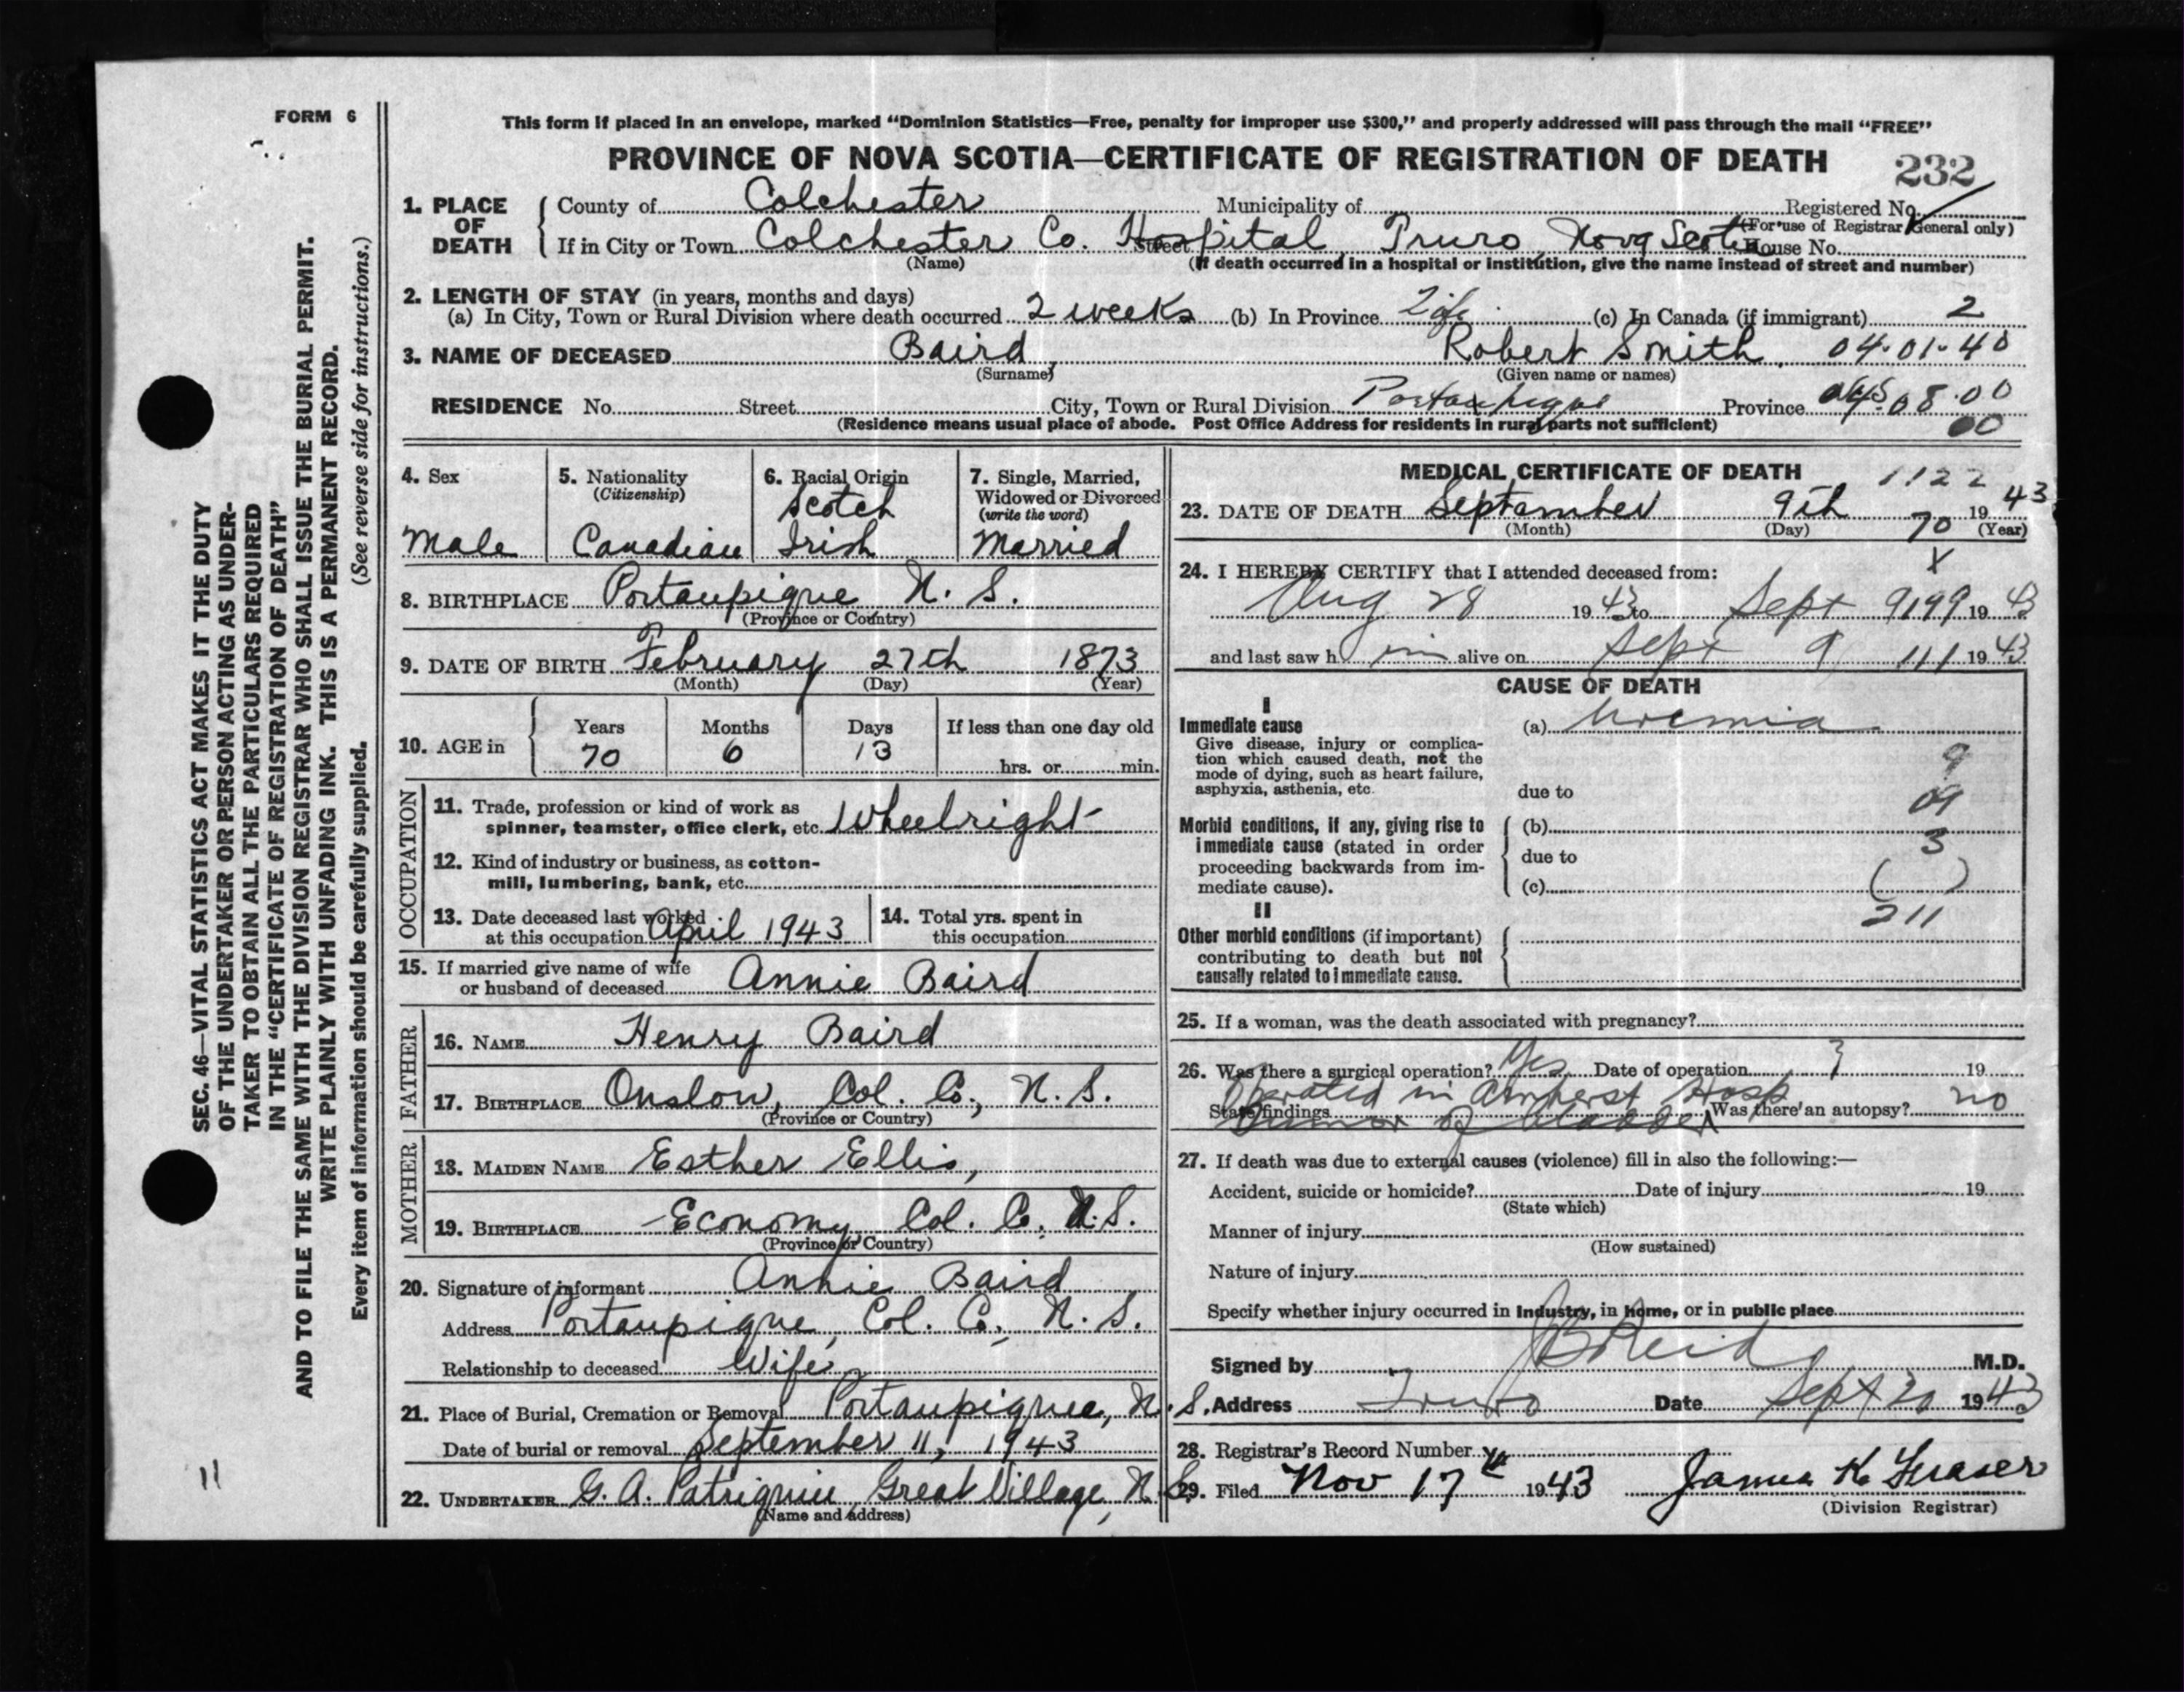 FORM 6
This form if placed in an envelope, marked “Dominion Statistics—Free, penalty for improper use $300,” and properly addressed will pass through the mail “FREE”
PROVINCE OF NOVA SCOTIA—CERTIFICATE OF REGISTRATION OF DEATH 232
1. PLACE OF DEATH
County of Colchester Municipality of Registered No.
(For use of Registrar General only)
If in City or Town Colchester Co. Hospital Truro Nova Scotia Street House No.
(Name) (If death occurred in a hospital or institution, give the name instead of street and number)
2. LENGTH OF STAY (in years, months and days)
(a) In City, Town or Rural Division where death occurred 2 weeks (b) In Province Life (c) In Canada (if immigrant) 2
3. NAME OF DECEASED Baird, Robert Smith 04-01-40
(Surname) (Given name or names)
RESIDENCE No. Street City, Town or Rural Division Portaupique Province 08.00
(Residence means usual place of abode. Post Office Address for residents in rural parts not sufficient) 00
4. Sex
Male
5. Nationality
(Citizenship)
Canadian
6. Racial Origin
Scotch
Irish
7. Single, Married,
Widowed or Divorced
(write the word)
Married
8. BIRTHPLACE Portaupique N. S.
(Province or Country)
9. DATE OF BIRTH February 27th 1873
(Month) (Day) (Year)
10. AGE in
Years Months Days If less than one day old
70 6 13
hrs. or min.
OCCUPATION
11. Trade, profession or kind of work as
spinner, teamster, office clerk, etc. Wheelright
12. Kind of industry or business, as cotton-
mill, lumbering, bank, etc.
13. Date deceased last worked
at this occupation April 1943
14. Total yrs. spent in
this occupation
15. If married give name of wife
or husband of deceased Annie Baird
FATHER
16. NAME Henry Baird
17. BIRTHPLACE Onslow, Col. Co., N. S.
(Province or Country)
MOTHER
18. MAIDEN NAME Esther Ellis,
19. BIRTHPLACE Economy Col. Co. N.S.
(Province or Country)
20. Signature of informant Annie Baird
Address Portaupique, Col. Co., N. S.
Relationship to deceased Wife
21. Place of Burial, Cremation or Removal Portaupique, N. S.
Date of burial or removal September 11, 1943
22. UNDERTAKER G. A. Patriquin Great Village, N. S.
(Name and address)
MEDICAL CERTIFICATE OF DEATH 1122
23. DATE OF DEATH September 9th 1943
(Month) (Day) 70 (Year)
24. I HEREBY CERTIFY that I attended deceased from: X
Aug 28 1943 to Sept 9 199 1943
and last saw him alive on Sept 9 111 1943
CAUSE OF DEATH
I
Immediate cause
Give disease, injury or complica-
tion which caused death, not the
mode of dying, such as heart failure,
asphyxia, asthenia, etc.
(a) Uremia
9
due to 09
Morbid conditions, if any, giving rise to
immediate cause (stated in order
proceeding backwards from im-
mediate cause).
(b)
3
due to
(c) ( )
211
II
Other morbid conditions (if important)
contributing to death but not
causally related to immediate cause.
25. If a woman, was the death associated with pregnancy?
26. Was there a surgical operation? Yes Date of operation ? 19
Operated in Amherst Hosp
State findings Tumor of bladder Was there an autopsy? no
27. If death was due to external causes (violence) fill in also the following:—
Accident, suicide or homicide? Date of injury 19
(State which)
Manner of injury
(How sustained)
Nature of injury
Specify whether injury occurred in Industry, in home, or in public place
Signed by J B Reid M.D.
Address Truro Date Sept 20 1943
28. Registrar's Record Number
29. Filed Nov 17th 1943 James K Fraser
(Division Registrar)
SEC. 46—VITAL STATISTICS ACT MAKES IT THE DUTY
OF THE UNDERTAKER OR PERSON ACTING AS UNDER-
TAKER TO OBTAIN ALL THE PARTICULARS REQUIRED
IN THE “CERTIFICATE OF REGISTRATION OF DEATH”
AND TO FILE THE SAME WITH THE DIVISION REGISTRAR WHO SHALL ISSUE THE BURIAL PERMIT.
WRITE PLAINLY WITH UNFADING INK. THIS IS A PERMANENT RECORD.
Every item of information should be carefully supplied. (See reverse side for instructions.)
11